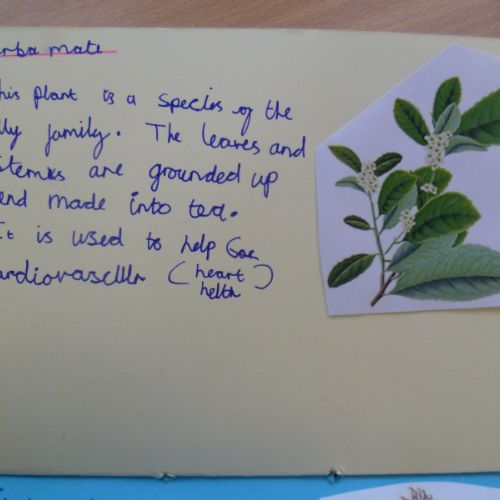 rba mate
his plant is a species of the
lly family. The leaves and
stems are grounded up
and made into tea.
It is used to help
ardiovasculr (heart
helth)